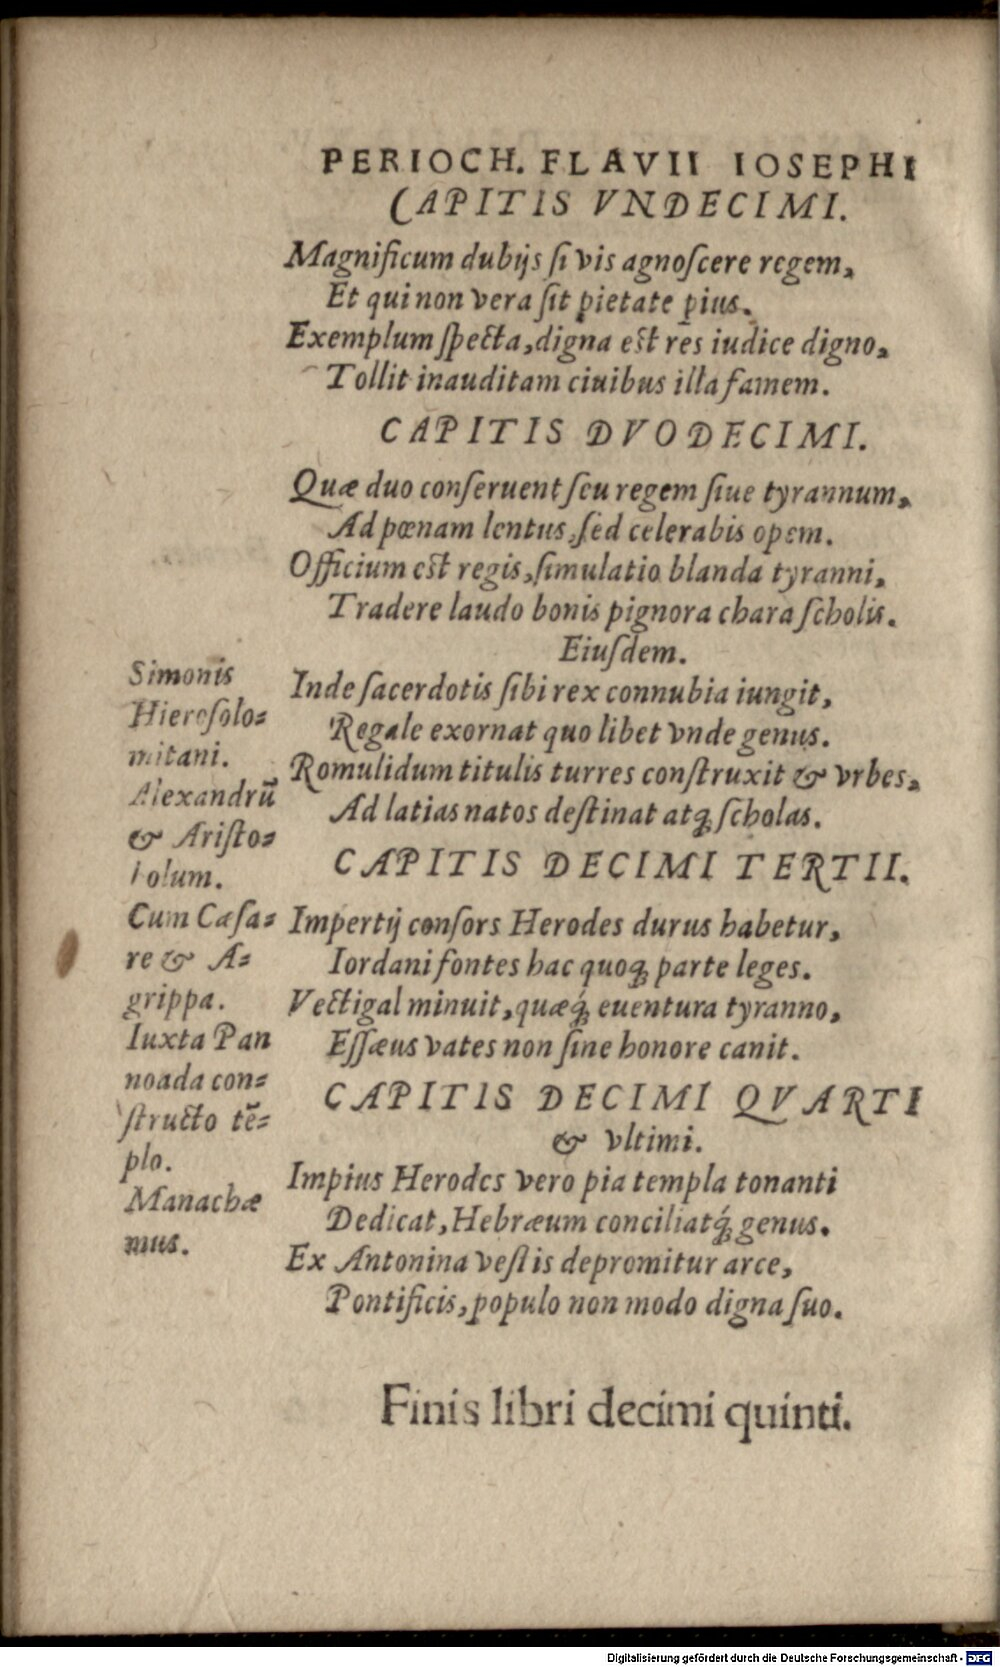 PERIOCH. FLAVII IOSEPHI
CAPITIS VNDECIMI.
Magnificum dubijs ſi vis agnoſcere regem,
Et qui non vera ſit pietate pius.
Exemplum ſpecta, digna est res iudice digno,
Tollit inauditam ciuibus illa famem.
CAPITIS DVODECIMI.
Quæ duo conſeruent ſeu regem ſiue tyrannum,
Ad pœnam lentus, ſed celerabis opem.
Officium est regis, ſimulatio blanda tyranni,
Tradere laudo bonis pignora chara ſcholis.
Eiuſdem.
Inde ſacerdotis ſibi rex connubia iungit,
Regale exornat quo libet vnde genus.
Romulidum titulis turres conſtruxit & vrbes,
Ad latias natos deſtinat atq́; ſcholas.
CAPITIS DECIMI TERTII.
Impertij conſors Herodes durus habetur,
Iordani fontes hac quoq; parte leges.
Vectigal minuit, quæq́; euentura tyranno,
Eſſæus vates non ſine honore canit.
CAPITIS DECIMI QVARTI
& vltimi.
Impius Herodes vero pia templa tonanti
Dedicat, Hebræum conciliatq́; genus.
Ex Antonina veſtis depromitur arce,
Pontificis, populo non modo digna ſuo.
Finis libri decimi quinti.
Simonis
Hieroſolo=
mitani.
Alexandrũ
& Ariſto=
bolum.
Cum Cæſa=
re & A=
grippa.
Iuxta Pan
noada con=
ſtructo tẽ=
plo.
Manachæ
mus.
Digitalisierung gefördert durch die Deutsche Forschungsgemeinschaft - DFG